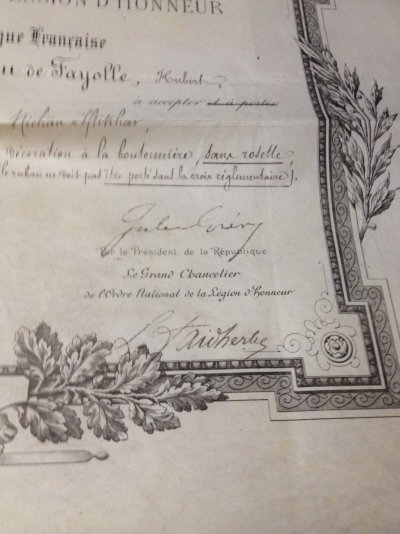 LÉGION D'HONNEUR
que Française
u de Fayolle, Hubert,
à accepter et à porter
Nichan Iftikhar,
Décoration à la boutonnière, sans rosette,
le ruban ne doit pas être porté sans la croix réglementaire).
Jules Grévy
Par le Président de la République
Le Grand Chancelier
de l'Ordre National de la Légion d'honneur
L. Faidherbe